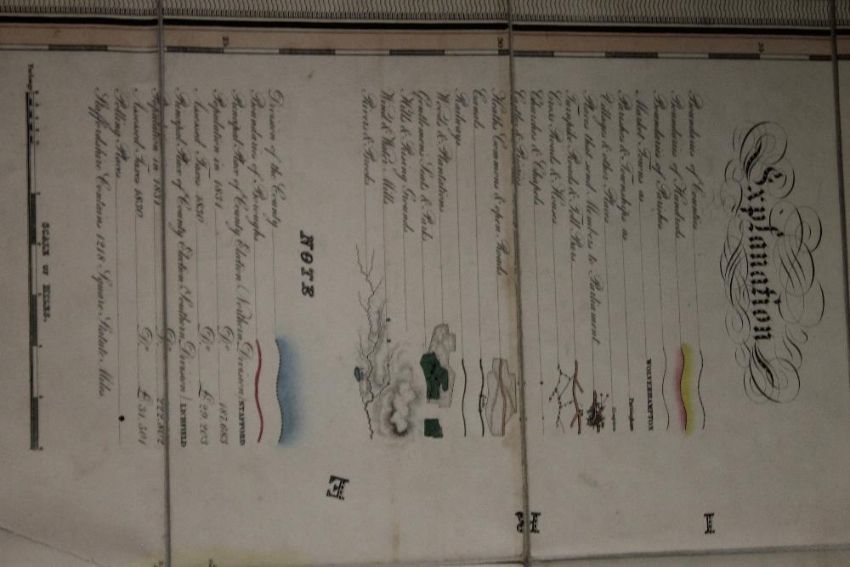 Explanation
Boundaries of Counties
Boundaries of Hundreds
Boundaries of Parishes
Market Towns as WOLVERHAMPTON
Parishes & Townships as
Village & other Places
Places that send Members to Parliament
Turnpike Roads & Toll Bars
Cross Roads & Houses
Churches & Chapels
Castles & Priories
Heaths Commons & open Roads
Canals
Railways
Woods & Plantations
Gentlemens Seats & Parks
Hills & Rising Grounds
Wind & Water Mills
Rivers & Brooks
NOTE
Division of the County
Boundaries of Boroughs
Principal Place of County Election (Northern Division) STAFFORD
Population in 1831 Do 187,683
Assessed Taxes 1830 Do £29,203
Principal Place of County Election (Southern Division) LICHFIELD
Population in 1831 Do 222,802
Assessed Taxes 1830 Do £31,501
Polling Places
Staffordshire Contains 1218 Square Statute Miles
SCALE OF MILES.